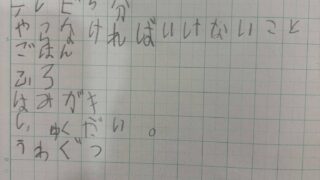 テレビ5分
やらなければいけないこと
ごはん
ふろ
はみがき
しゅくだい。
うわぐつ